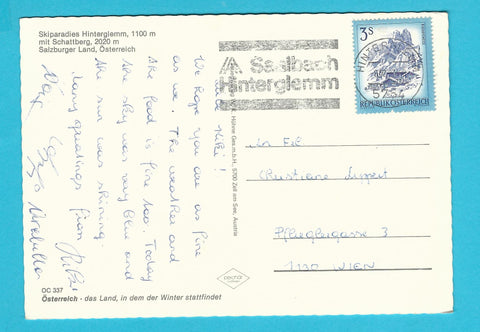 Skiparadies Hinterglemm, 1100 m
mit Schattberg, 2020 m
Salzburger Land, Österreich
Saalbach
Hinterglemm
3s
REPUBLIK ÖSTERREICH
5754
We hope you are as fine
as we. The weather and
the food is fine too. Today
the sky was very blue and
the sun was shining.
greetings from
An Frl.
Christiane Lippert
Pfluglergasse 3
1120 WIEN
Ges.m.b.H., 5700 Zell am See, Austria
DC 337
Österreich - das Land, in dem der Winter stattfindet